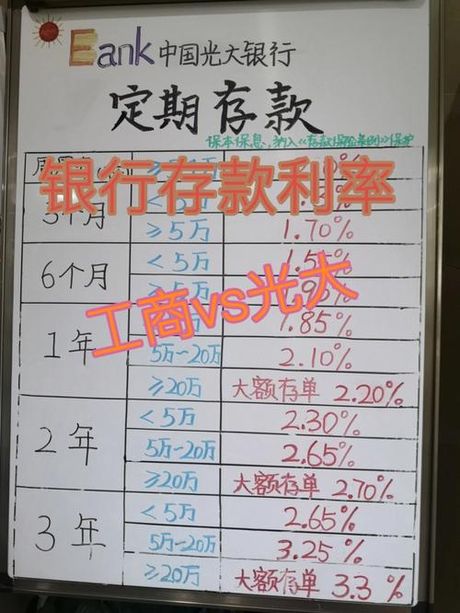 Bank 中国光大银行
定期存款
保本保息,纳入《存款保险条例》保护
银行存款利率
3个月
≥5万 1.70%
6个月 <5万
工商vs光大
1年 1.85%
5万-20万 2.10%
≥20万 大额存单 2.20%
2年 <5万 2.30%
5万-20万 2.65%
≥20万 大额存单 2.70%
3年 <5万 2.65%
5万-20万 3.25%
≥20万 大额存单 3.3%